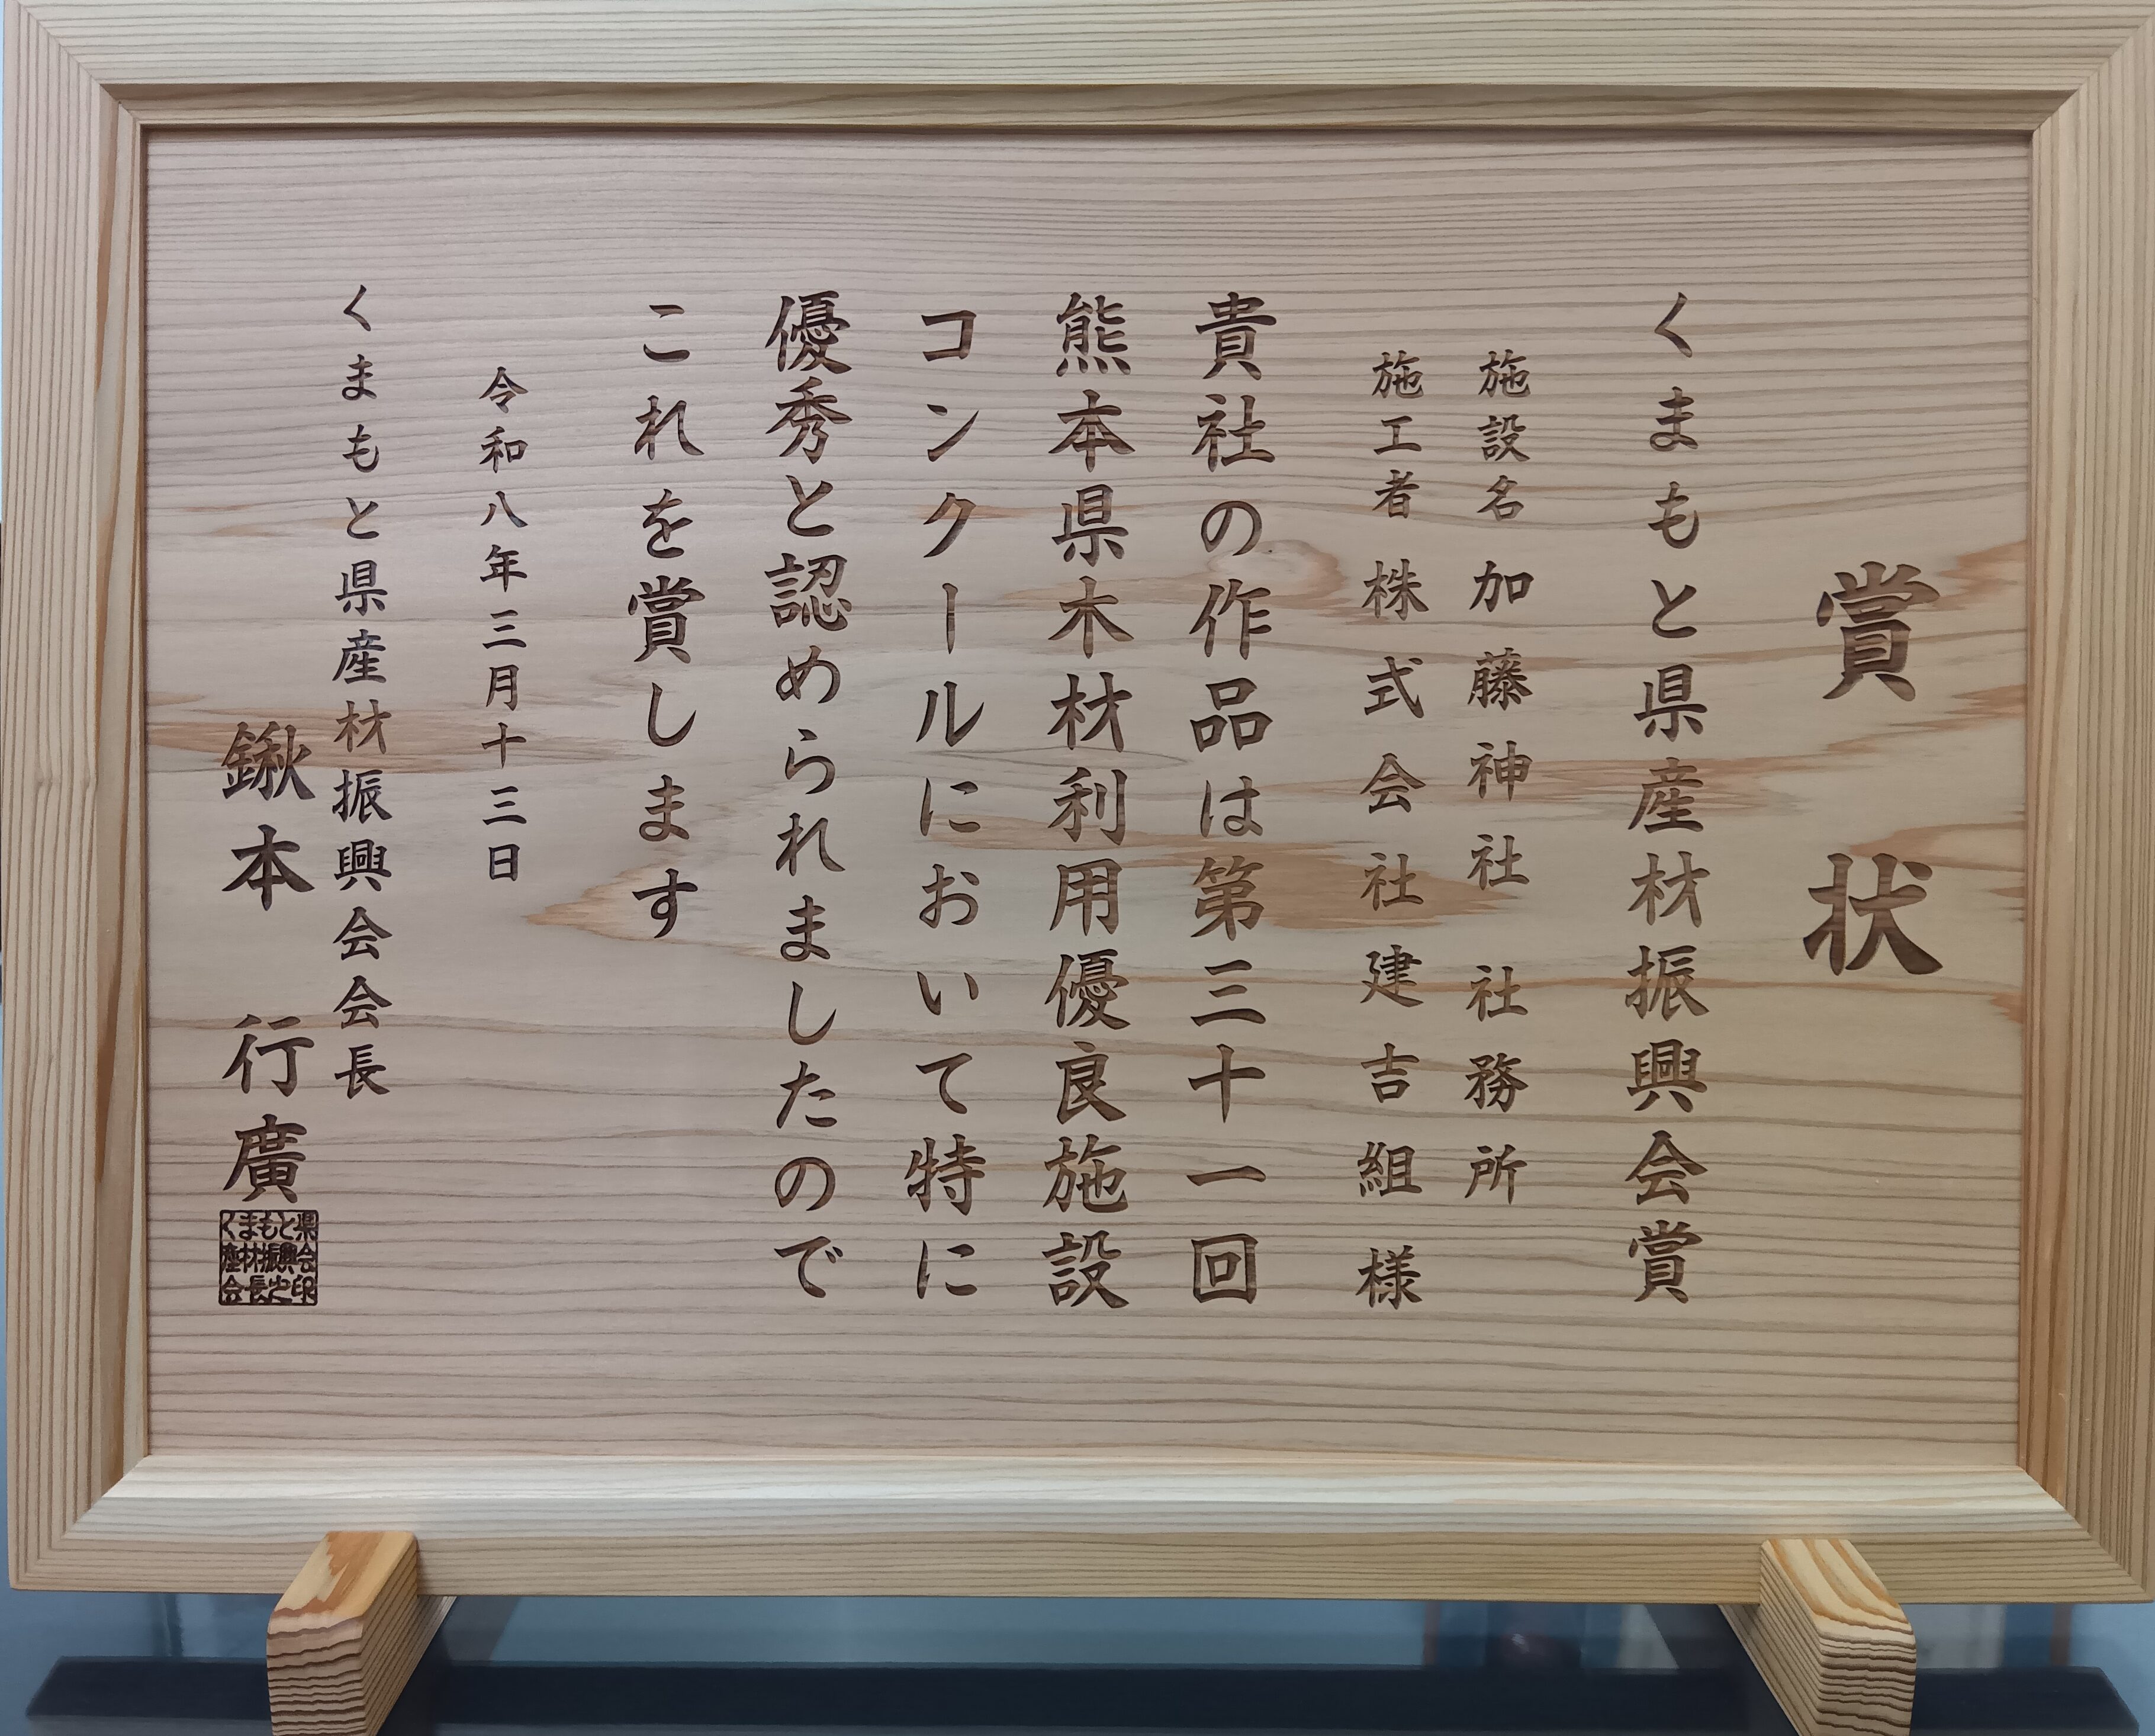 賞状
くまもと県産材振興会賞
施設名 加藤神社 社務所
施工者 株式会社建吉組 様
貴社の作品は第三十一回
熊本県木材利用優良施設
コンクールにおいて特に
優秀と認められましたので
これを賞します
令和八年三月十三日
くまもと県産材振興会会長
鍬本 行廣
くまもと県
産材振興会
会長之印